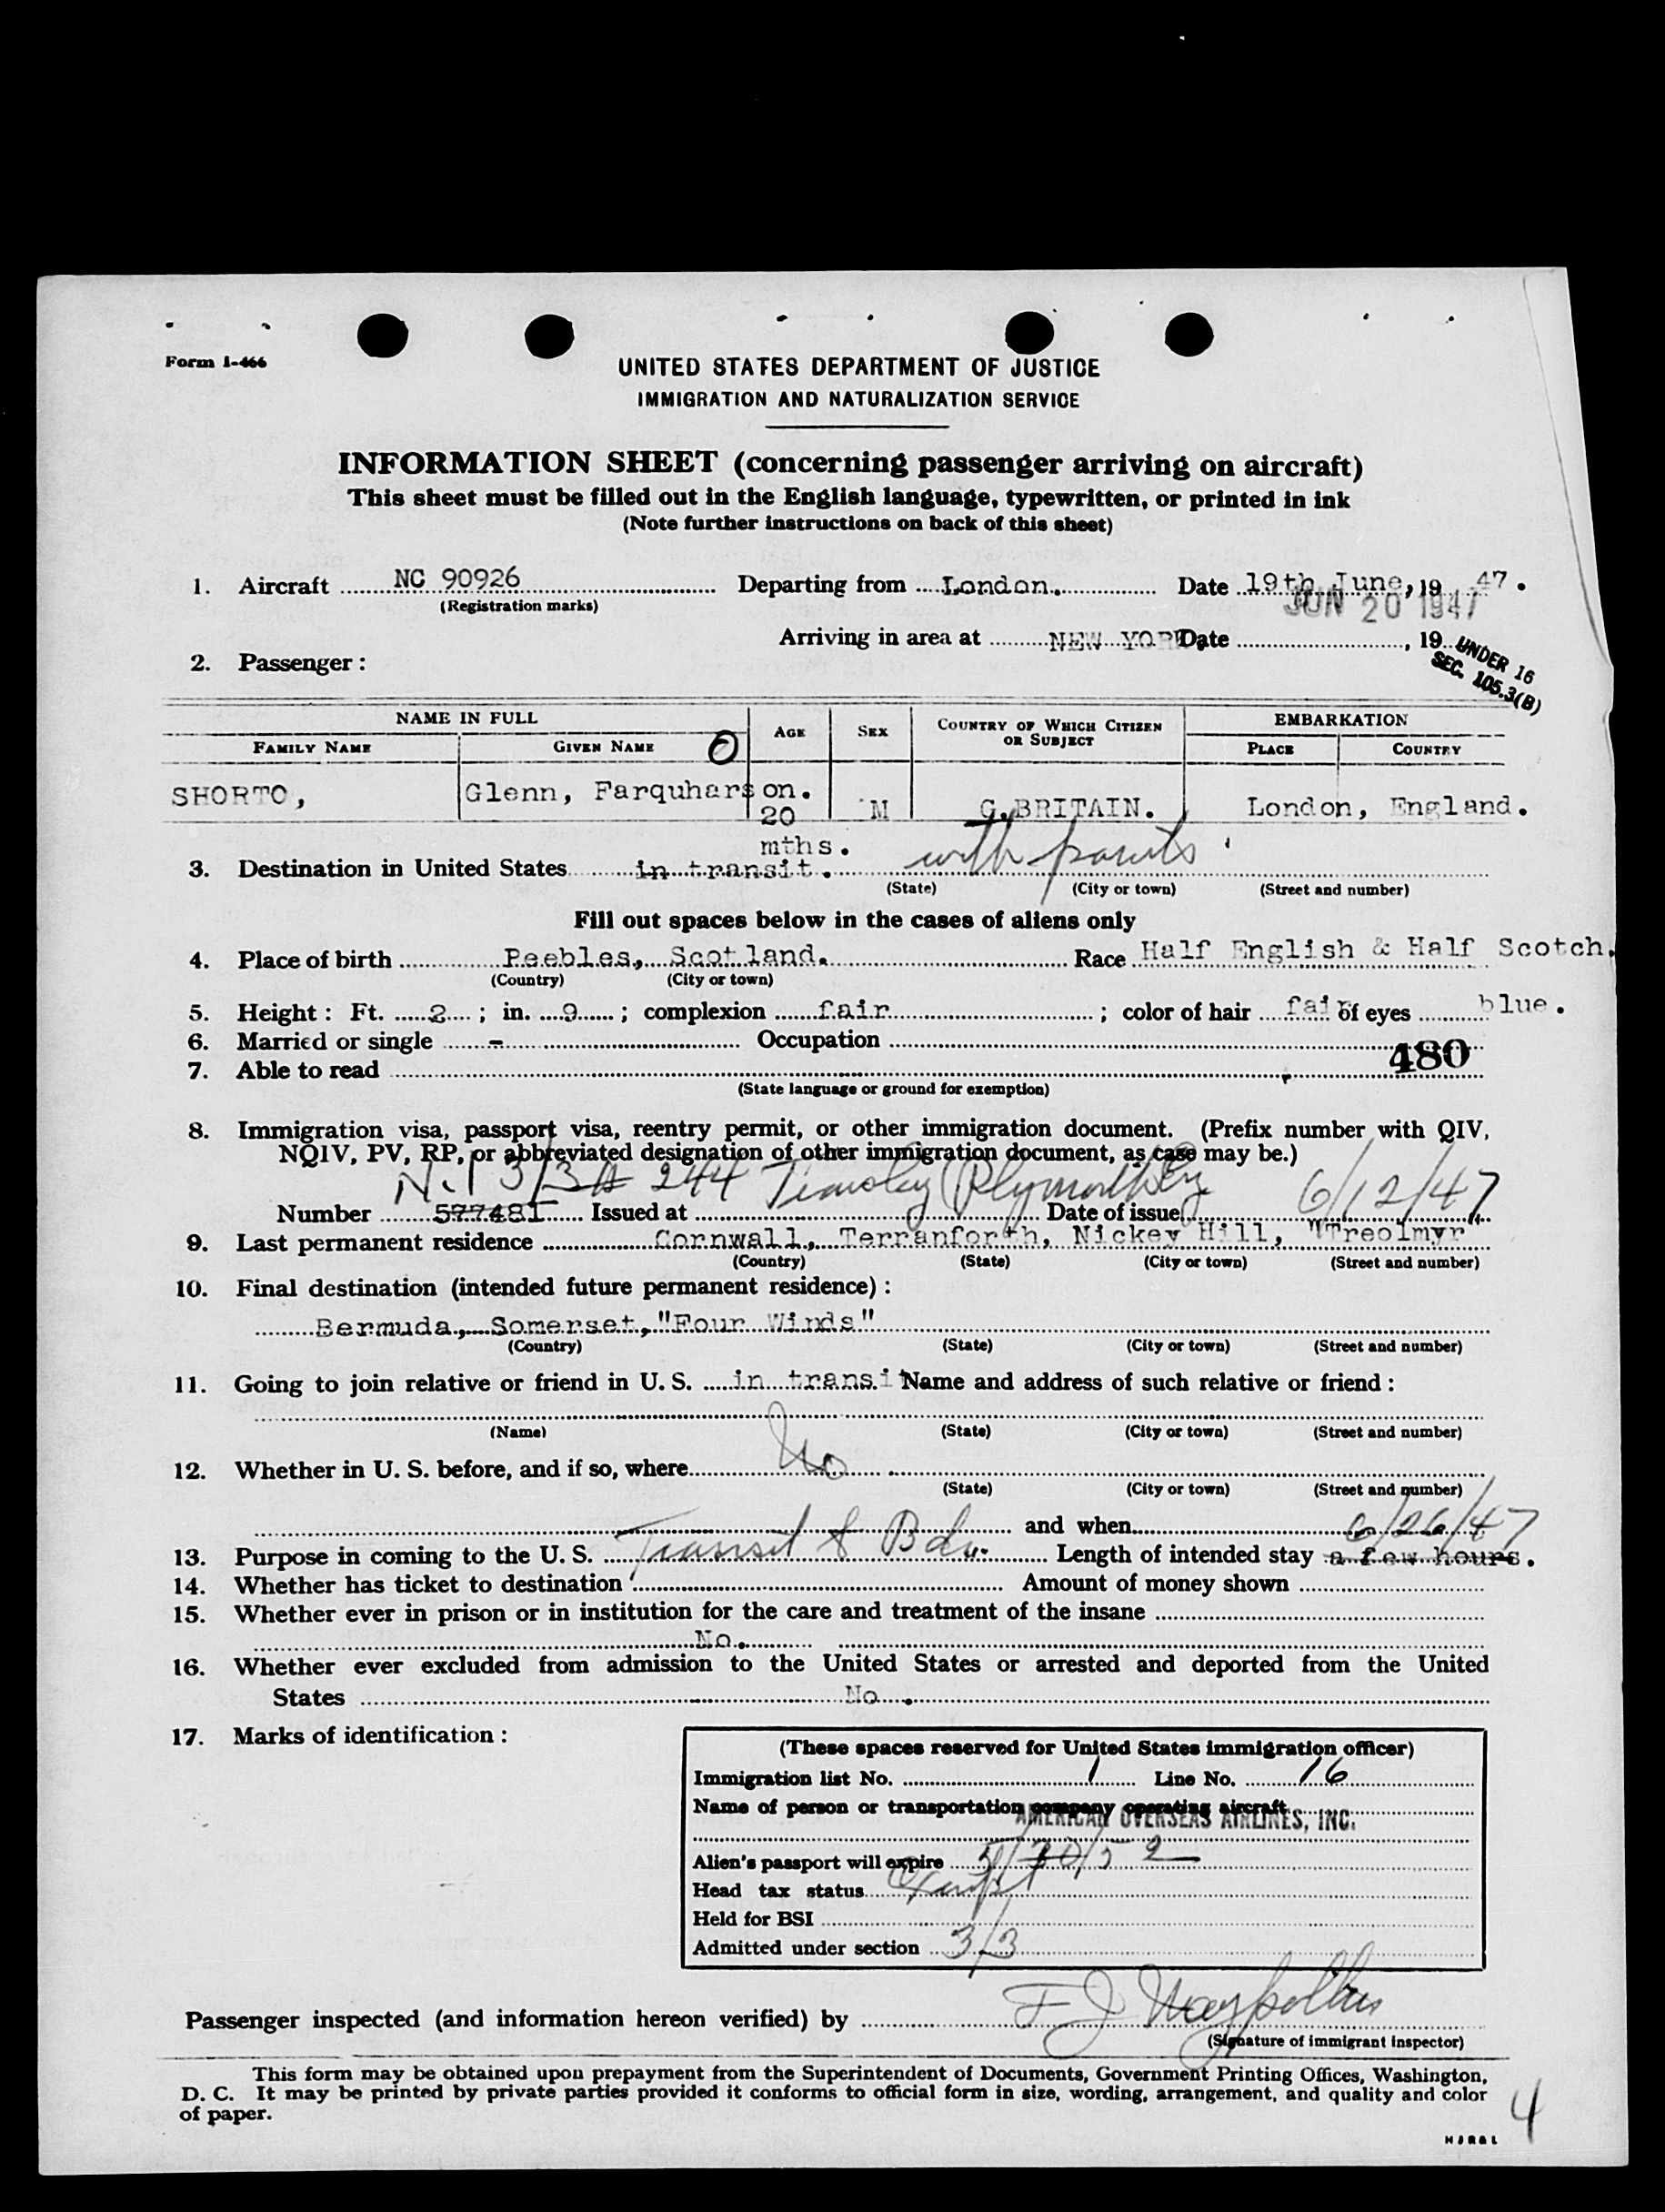 Form I-466
UNITED STATES DEPARTMENT OF JUSTICE
IMMIGRATION AND NATURALIZATION SERVICE
INFORMATION SHEET (concerning passenger arriving on aircraft)
This sheet must be filled out in the English language, typewritten, or printed in ink
(Note further instructions on back of this sheet)
1. Aircraft NC 90926 Departing from London. Date 19th June, 19 47.
(Registration marks) JUN 20 1947
Arriving in area at NEW YOR Date , 19
UNDER 16
SEC. 105.3(B)
2. Passenger:
NAME IN FULL AGE SEX COUNTRY OF WHICH CITIZEN OR SUBJECT EMBARKATION
FAMILY NAME GIVEN NAME PLACE COUNTRY
SHORTO, Glenn, Farquharson. 20 mths. M G.BRITAIN. London, England.
3. Destination in United States in transit. with parents
(State) (City or town) (Street and number)
Fill out spaces below in the cases of aliens only
4. Place of birth Peebles, Scotland. Race Half English & Half Scotch.
(Country) (City or town)
5. Height: Ft. 2; in. 9; complexion fair; color of hair fair of eyes blue.
6. Married or single - Occupation
480
7. Able to read
(State language or ground for exemption)
8. Immigration visa, passport visa, reentry permit, or other immigration document. (Prefix number with QIV,
NQIV, PV, RP, or abbreviated designation of other immigration document, as case may be.)
3/3 # 244 Plymouth 6/12/47
Number 577481 Issued at Date of issue
9. Last permanent residence Cornwall, Terranforth, Nickey Hill, "Treolmyr"
(Country) (State) (City or town) (Street and number)
10. Final destination (intended future permanent residence):
Bermuda, Somerset, "Four Winds"
(Country) (State) (City or town) (Street and number)
11. Going to join relative or friend in U. S. in transit Name and address of such relative or friend:
(Name) (State) (City or town) (Street and number)
12. Whether in U. S. before, and if so, where No
(State) (City or town) (Street and number)
and when 6/26/47
13. Purpose in coming to the U. S. Transit to Bda. Length of intended stay a few hours.
14. Whether has ticket to destination Amount of money shown
15. Whether ever in prison or in institution for the care and treatment of the insane
No.
16. Whether ever excluded from admission to the United States or arrested and deported from the United
States No.
17. Marks of identification:
(These spaces reserved for United States immigration officer)
Immigration list No. 1 Line No. 16
Name of person or transportation company operating aircraft
AMERICAN OVERSEAS AIRLINES, INC.
Alien's passport will expire 5/30/52
Head tax status Exempt
Held for BSI
Admitted under section 3/3
Passenger inspected (and information hereon verified) by F J
(Signature of immigrant inspector)
This form may be obtained upon prepayment from the Superintendent of Documents, Government Printing Offices, Washington,
D. C. It may be printed by private parties provided it conforms to official form in size, wording, arrangement, and quality and color
of paper.
4